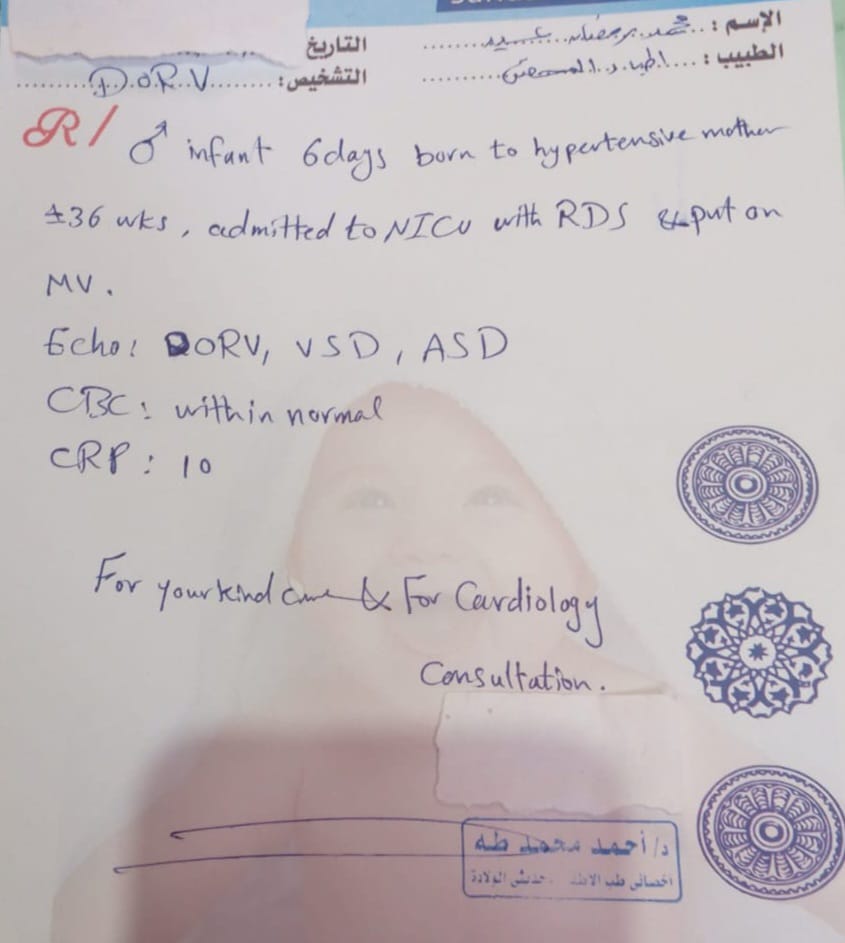 الإسم : محمد رمضان عبيد
التاريخ
الطبيب :
التشخيص : D.O.R.V
R/ ♂ infant 6days born to hypertensive mother
±36 wks, admitted to NICU with RDS & put on
MV.
Echo: DORV, VSD, ASD
CBC: within normal
CRP: 10
For your kind care & For Cardiology
Consultation.
د/ أحمد محمد طه
اخصائى طب الاطفال حديثى الولادة